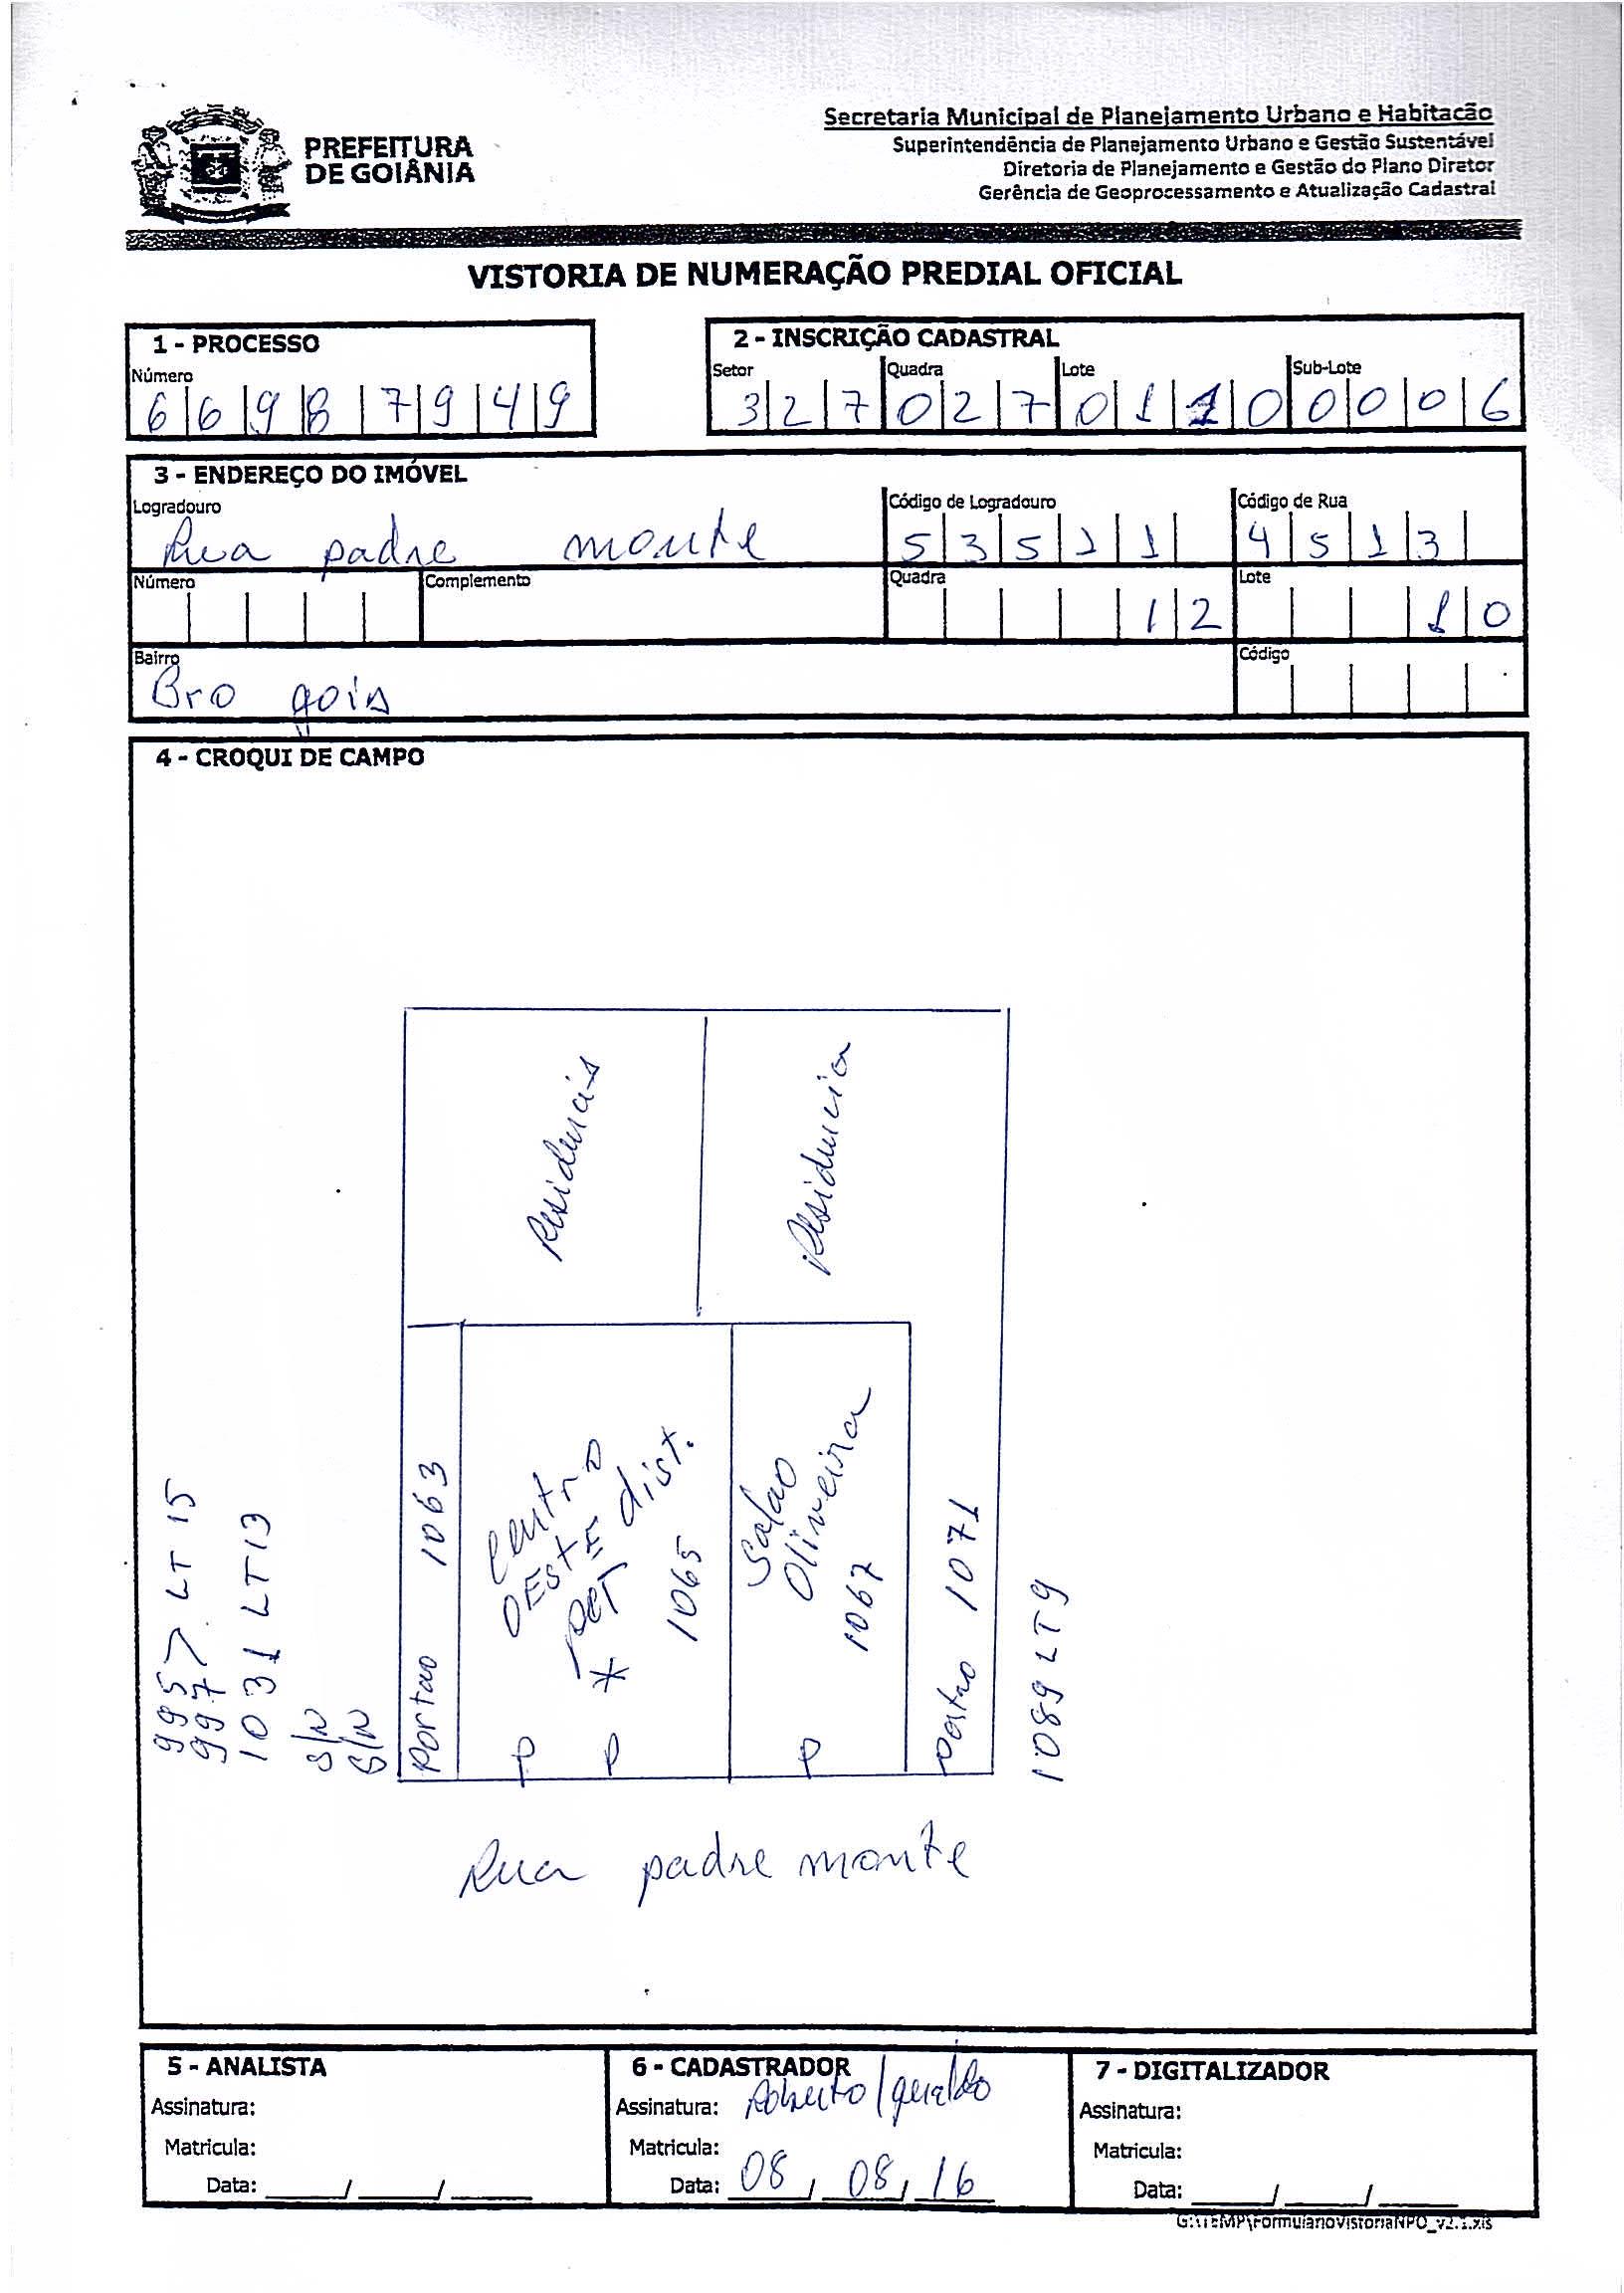 PREFEITURA
DE GOIÂNIA
Secretaria Municipal de Planejamento Urbano e Habitação
Superintendência de Planejamento Urbano e Gestão Sustentável
Diretoria de Planejamento e Gestão do Plano Diretor
Gerência de Geoprocessamento e Atualização Cadastral
VISTORIA DE NUMERAÇÃO PREDIAL OFICIAL
1 - PROCESSO
Número
6 6 9 8 7 9 4 9
2 - INSCRIÇÃO CADASTRAL
Setor Quadra Lote Sub-Lote
3 2 7 0 2 7 0 1 1 0 0 0 0 6
3 - ENDEREÇO DO IMÓVEL
Logradouro Código de Logradouro Código de Rua
Rua padre monte 5 3 5 1 1 4 5 1 3
Número Complemento Quadra Lote
1 2 1 0
Bairro Código
Bro gois
4 - CROQUI DE CAMPO
Residencias
Residencia
995 > LT 15
997
1031 LT13
S/N
S/N
Portao 1063
Centro
OEstE dist.
PET
* 1065
P
P
Salao
Oliveira
1067
P
Portao 1071
1089 LT9
Rua padre monte
5 - ANALISTA
Assinatura:
Matricula:
Data: ____/____/____
6 - CADASTRADOR
Assinatura: Roberto/geraldo
Matricula:
Data: 08 / 08 / 16
7 - DIGITALIZADOR
Assinatura:
Matricula:
Data: ____/____/____
G:\TEMP\FormularioVistoriaNPO_v2.1.xls